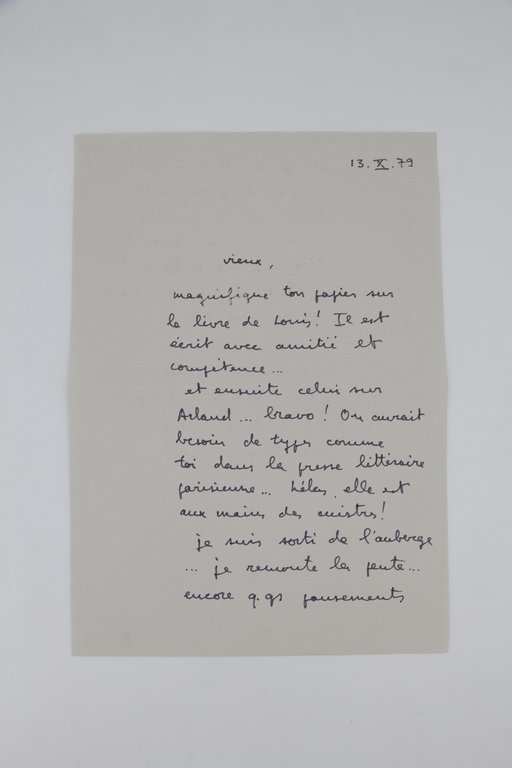 13.X.79
vieux,
magnifique ton papier sur
le livre de Louis! Il est
écrit avec amitié et
compétence...
et ensuite celui sur
Arland... bravo! On aurait
besoin de types comme
toi dans la presse littéraire
parisienne... hélas, elle est
aux mains des cuistres!
je suis sorti de l'auberge
... je remonte la pente...
encore q.qs pansements